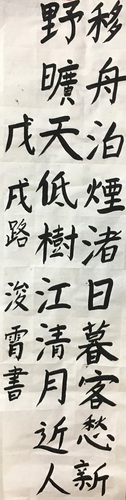 移舟泊煙渚日暮客愁新
野曠天低樹江清月近人
戊戌路浚霄書